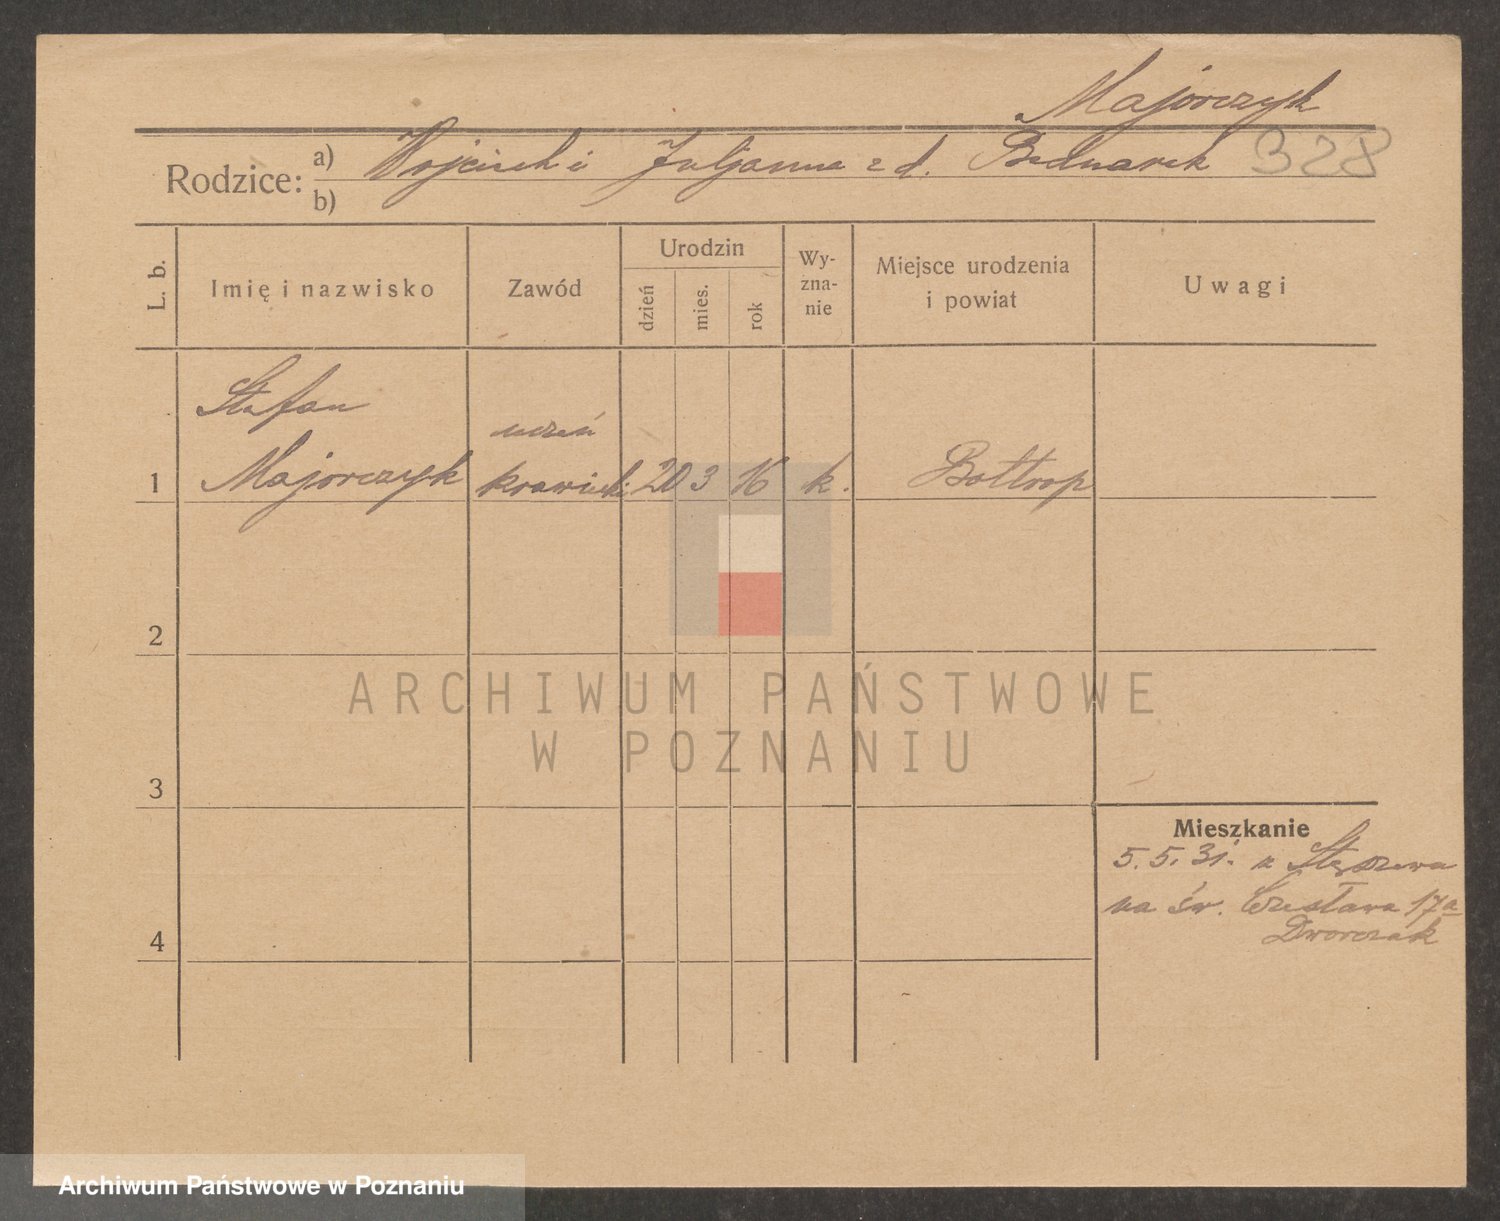 Majorczyk
Rodzice: a) Wojciech i Juljanna z d. Bednarek 328
b)
L. b. Imię i nazwisko Zawód Urodzin dzień mies. rok Wy-zna-nie Miejsce urodzenia i powiat Uwagi
Stefan uczeń
1 Majorczyk krawiecki 20 3 16 k. Bottrop
2
ARCHIWUM PAŃSTWOWE
W POZNANIU
3
Mieszkanie
5.5.31. z Stęszewa
na św. Czesława 17a
4 Dworczak
Archiwum Państwowe w Poznaniu